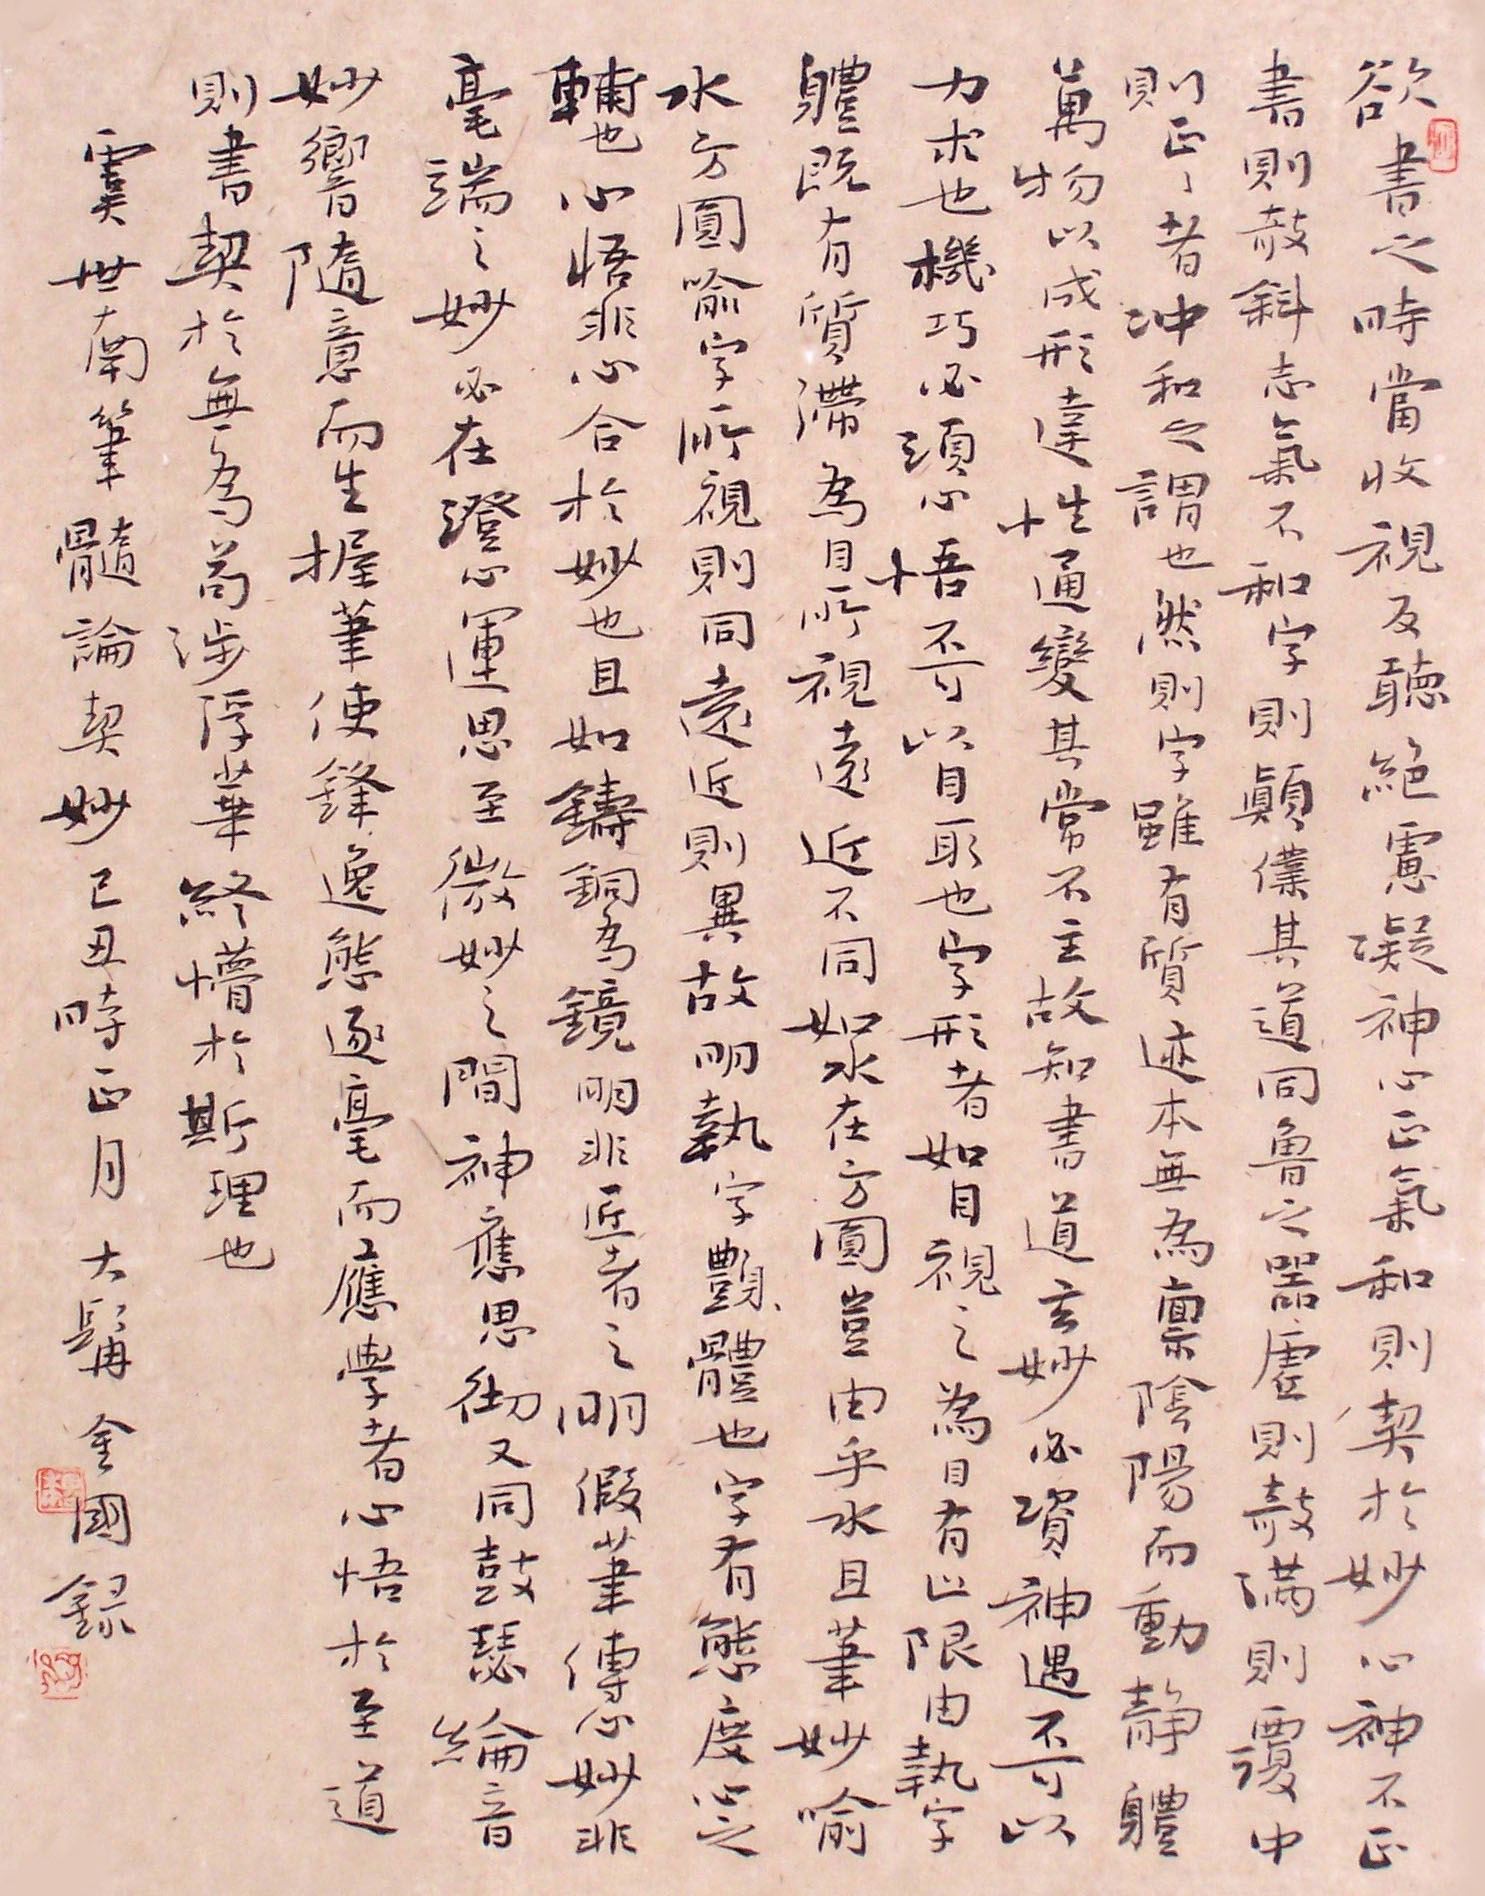 欲書之時當收視反聽絕慮凝神心正氣和則契於妙心神不正
書則敧斜志氣不和字則顛仆其道同魯之器虛則敧滿則覆中
則正正者冲和之謂也然則字雖有質迹本無為禀陰陽而動靜體
萬物以成形達性通變其常不主故知書道玄妙必資神遇不可以
力求也機巧必須心悟不可以目取也字形者如目視之為目有止限由執字
體既有質滯為目所視遠近不同如水在方圓豈由乎水且筆妙喻
水方圓喻字所視則同遠近則異故明執字體也字有態度心之
輔也心悟非心合於妙也且如鑄銅為鏡明非匠者之明假筆傳心妙非
毫端之妙必在澄心運思至微妙之間神應思徹又同鼓瑟綸音
妙響隨意而生握筆使鋒逸態逐毫而應學者心悟於至道
則書契於無為苟涉浮華終懵於斯理也
虞世南筆髓論契妙己丑時正月大髯金國錄